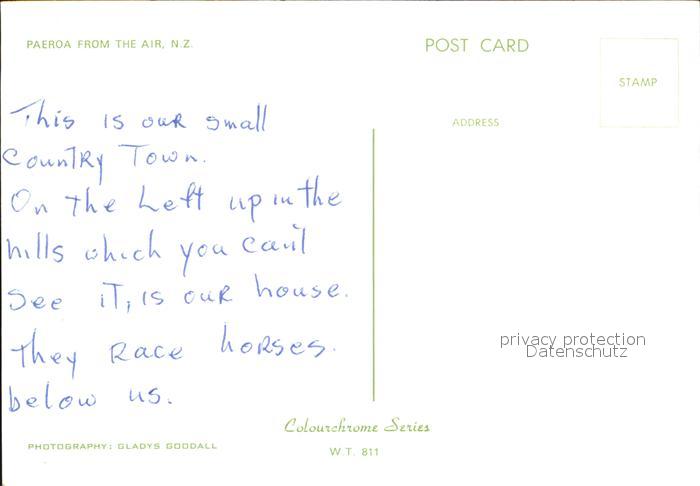 PAEROA FROM THE AIR, N.Z.
POST CARD
STAMP
ADDRESS
This is our small
Country Town.
On the Left up in the
hills which you can't
see it, is our house.
They Race horses.
below us.
privacy protection
Datenschutz
Colourchrome Series
W.T. 811
PHOTOGRAPHY: GLADYS GOODALL